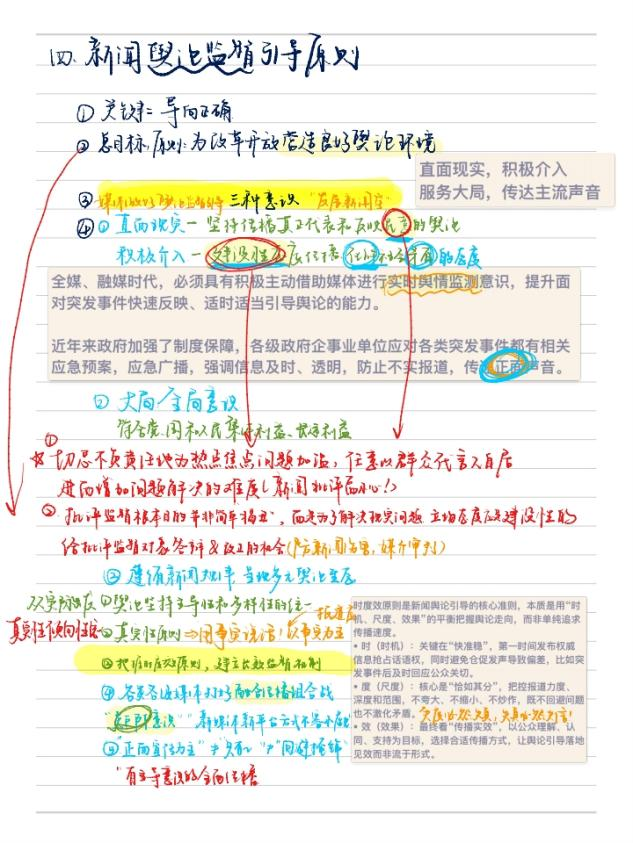 四.新闻舆论监督引导原则
① 关键:导向正确
② 总目标,原则:为改革开放营造良好舆论环境
直面现实,积极介入
服务大局,传达主流声音
③ 三种意识
④ ① 直面现实-坚持传播真正代表和反映民意的舆论
积极介入-建设性 的态度
全媒、融媒时代,必须具有积极主动借助媒体进行实时舆情监测意识,提升面
对突发事件快速反映、适时适当引导舆论的能力。
近年来政府加强了制度保障,各级政府企事业单位应对各类突发事件都有相关
应急预案,应急广播,强调信息及时、透明,防止不实报道,传达正面声音。
② 大局全局意识
符合党、国和人民集体利益、长远利益
①
切忌不负责任地为热点焦点问题加温,任意以群众代言人自居
进而增加问题解决的难度(新闻批评
② 批评监督根本目的并非简单揭丑,而是为了解决现实问题 态度应是建设性的
给批评监督对象答辩&改正的机会(防新闻伤害,媒介审判)
③ 遵循新闻规律
① 舆论坚持主导性和多样性的统一
② 真实性原则⇒用事实说话!
③ 把准时度效原则,建立长效监督机制
④ 各类各级媒体 融合传播组合战
⑤ "正面宣传为主"≠只有
"有主导意识的全面传播
时度效原则是新闻舆论引导的核心准则,本质是用“时
机、尺度、效果”的平衡把握舆论走向,而非单纯追求
传播速度。
• 时(时机):关键在“快准稳”,第一时间发布权威
信息抢占话语权,同时避免仓促发声导致偏差,比如突
发事件后及时回应公众关切。
• 度(尺度):核心是“恰如其分”,把控报道力度、
深度和范围,不夸大、不缩小、不炒作,既不回避问题
也不激化矛盾。
• 效(效果):最终看“传播实效”,以公众理解、认
同、支持为目标,选择合适传播方式,让舆论引导落地
见效而非流于形式。